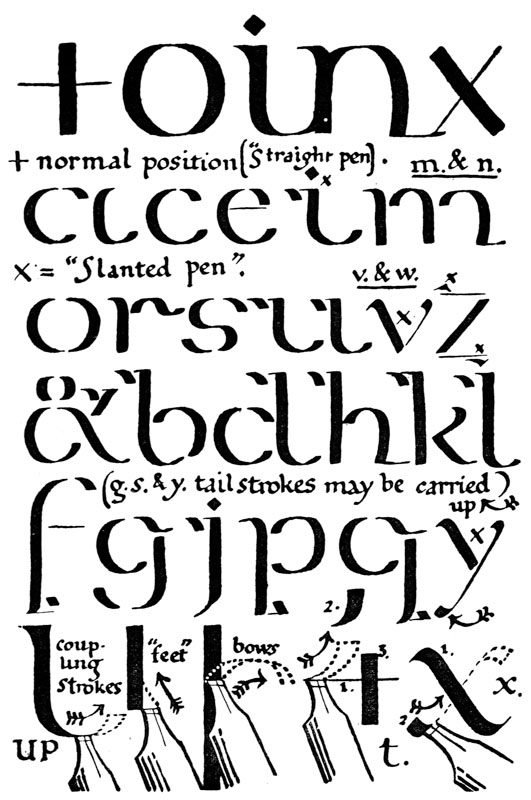 +oinx
+ normal position ("Straight pen). m. & n.
x
aceim
x = "Slanted pen". v. & w.
orsuvz
x x x
&bdhkl
(g. s. & y. tail strokes may be carried)
up
fgjpqy
2. x
coup-
ling
strokes
"feet"
bows
1. 3.
1. 2
up
t.
x.